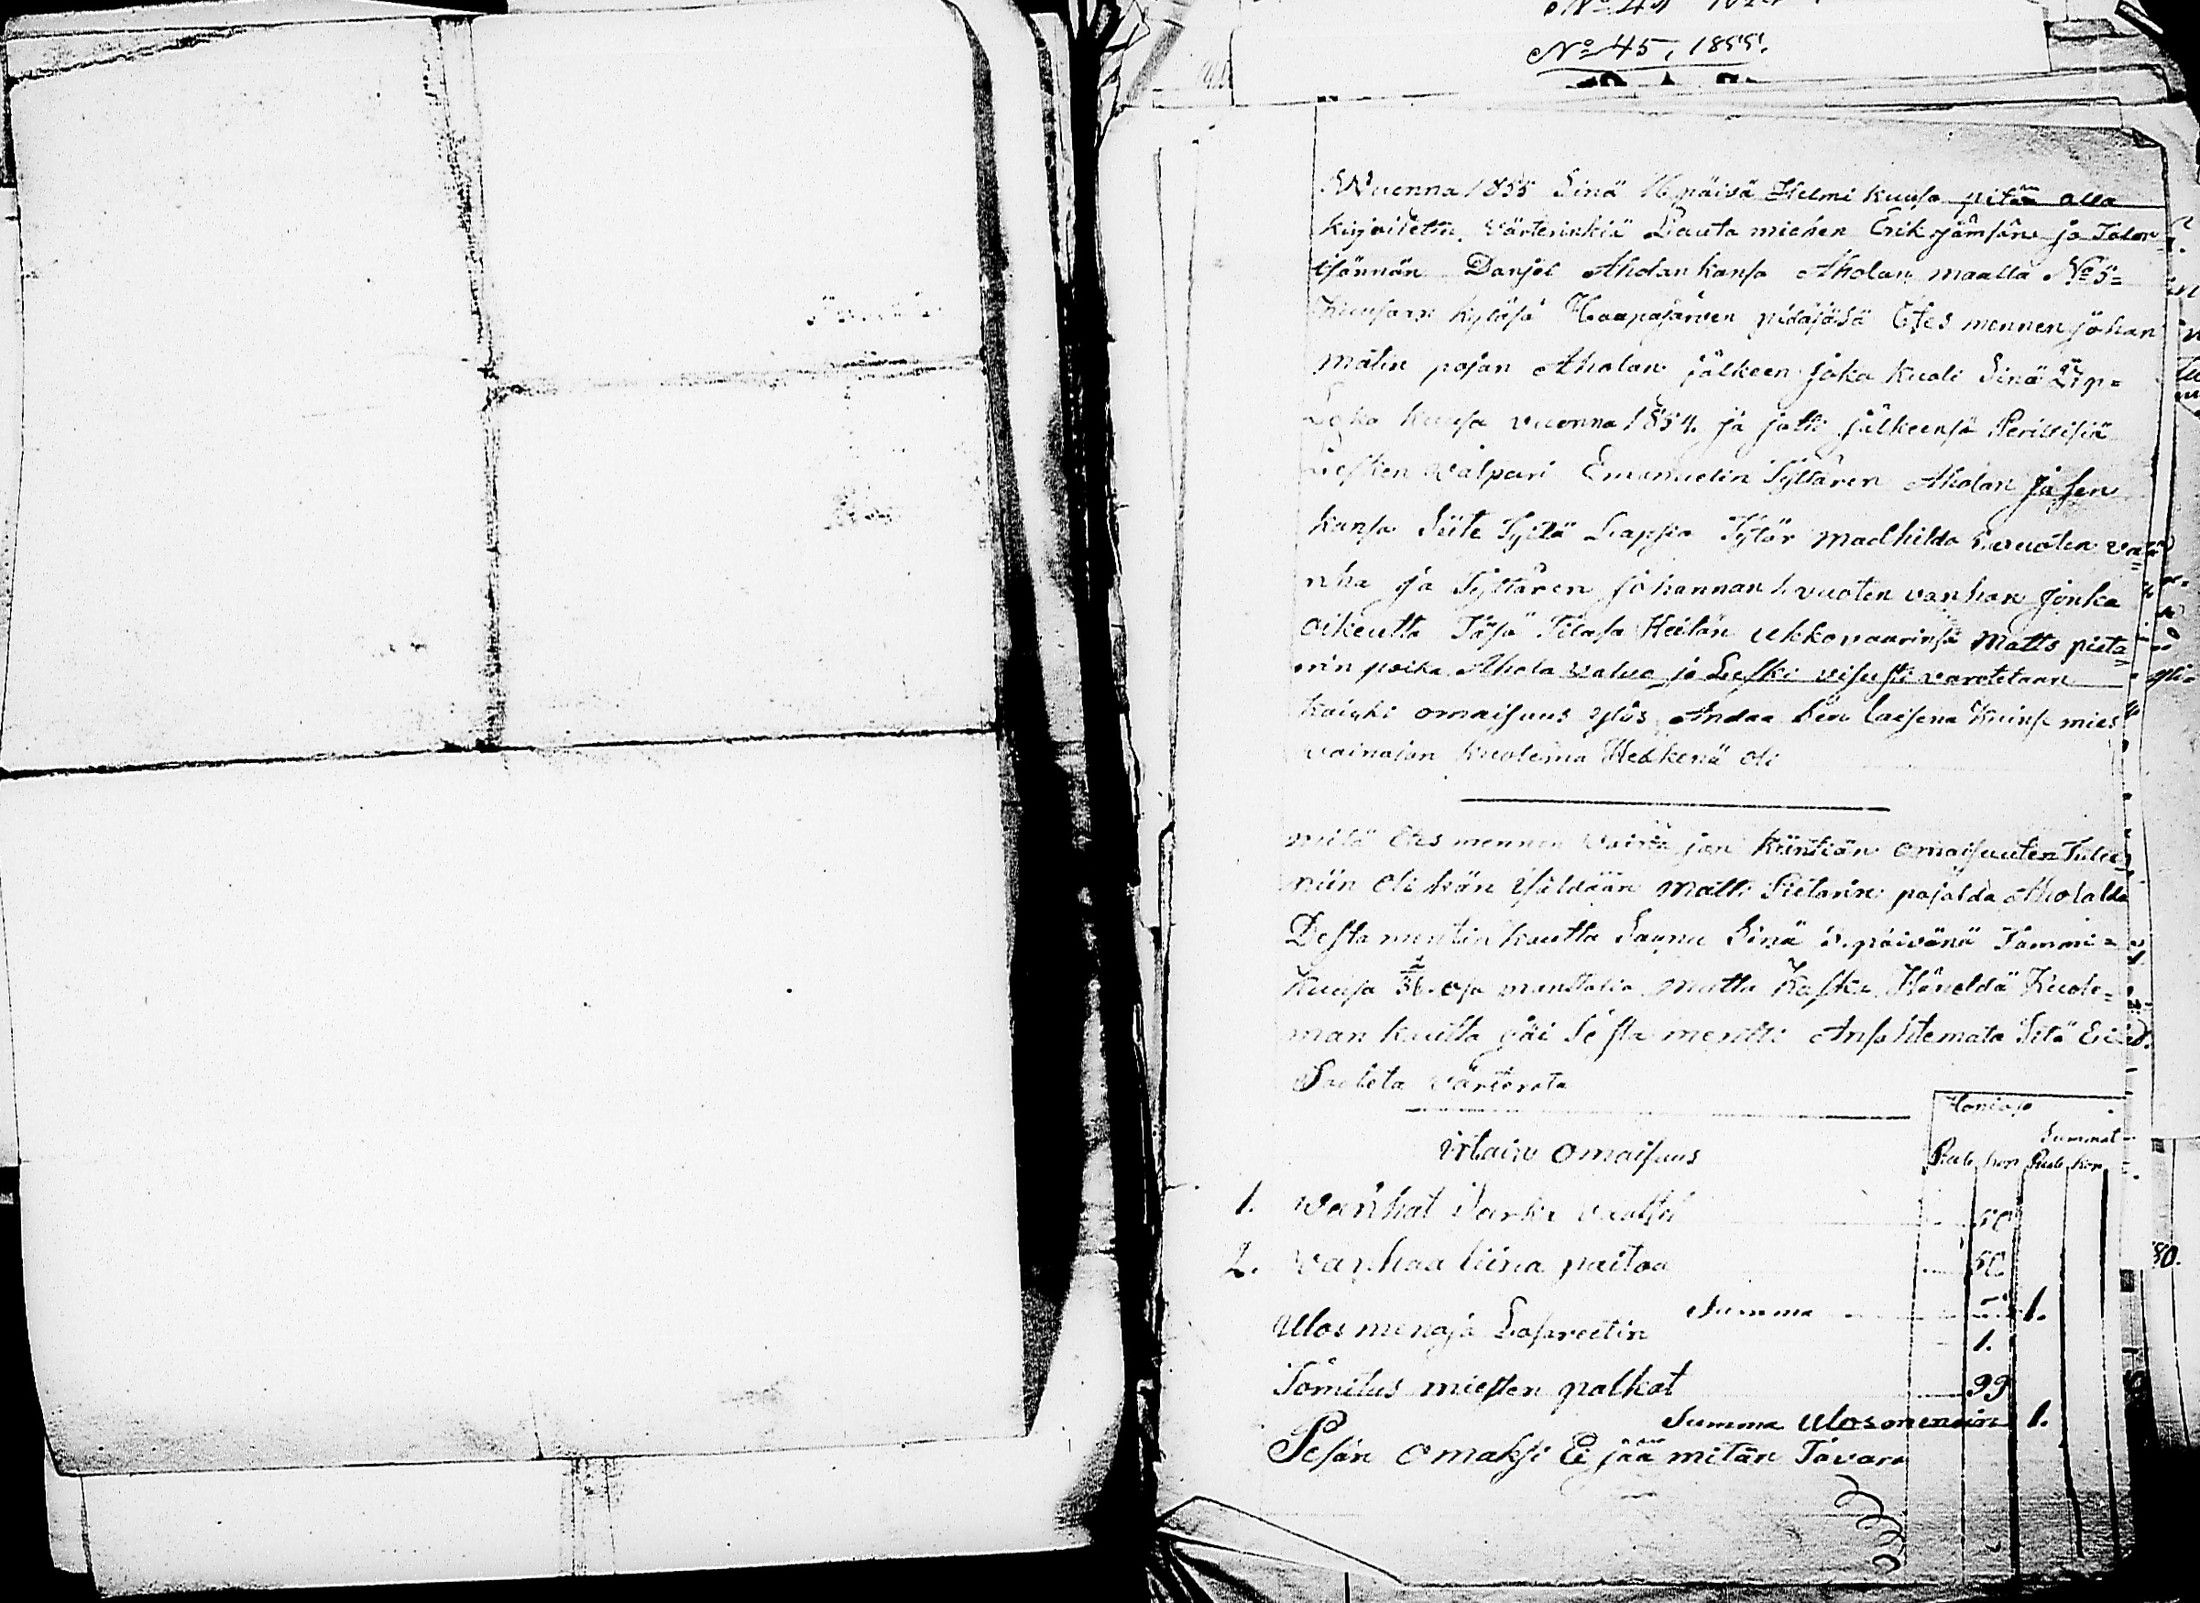 No 45, 1855.
Wuonna 1855 Sinä 16 päivä Helmi kuusa pitän alla
kirjoitettu värterinkiä Lauta miehen Erik Jämsän ja Talon
isännän Danjel Aholan kansa Aholan maalla No 5=
kylässä Haapajärven pidäjäsä Edes mennen Johan
Matin pojan Aholan jälkeen joka kuoli Sinä p=
Loka kuusa vuonna 1854. ja jätti jälkeensä Perillisiä
Lesken Walpuri Emanuelin Tyttären Aholan ja sen
kansa Siite Tyttä Lapsia Tytär Madhilda vuoten va=
nha ja Tyttären Johannan 1. vuoten vanhan jonka
oikeutta Täsä Tilasa Heitän ukkovaarinsa Matts pieta=
rin poika Ahola valvo ja Leski visusti varotetaan
kaikki omaisuus ylös Andaa Sen laisena kuin se mies
vainajan kuolema Hetkenä oli
mitä Edes mennen Vainajan kiintiän omaisuuten Tulee
niin oli hän isäldään Matti Pietarin pojalda Aholalda
Destamentin kautta Saanu Sinä päivänä Tammi=
kuusa 1/36 osa manttalia Mutta koska Häneldä Kuole=
man kautta jäi Testamentti Ansaitemata Sitä Ei
Taideta värterata
irtain omaisuus
Hopiasa
Summat
Rub kop Rub kop
1. Wanhat Sarka vaatet 50
2. Vanhaa liina paitaa 50.
Summa 1.
Ulos menoja Lasareetin 1.
Tomitus miesten palkat 99
Summa Ulosmenoin 1.
Pesän omaksi Ei jää mitän Tavara